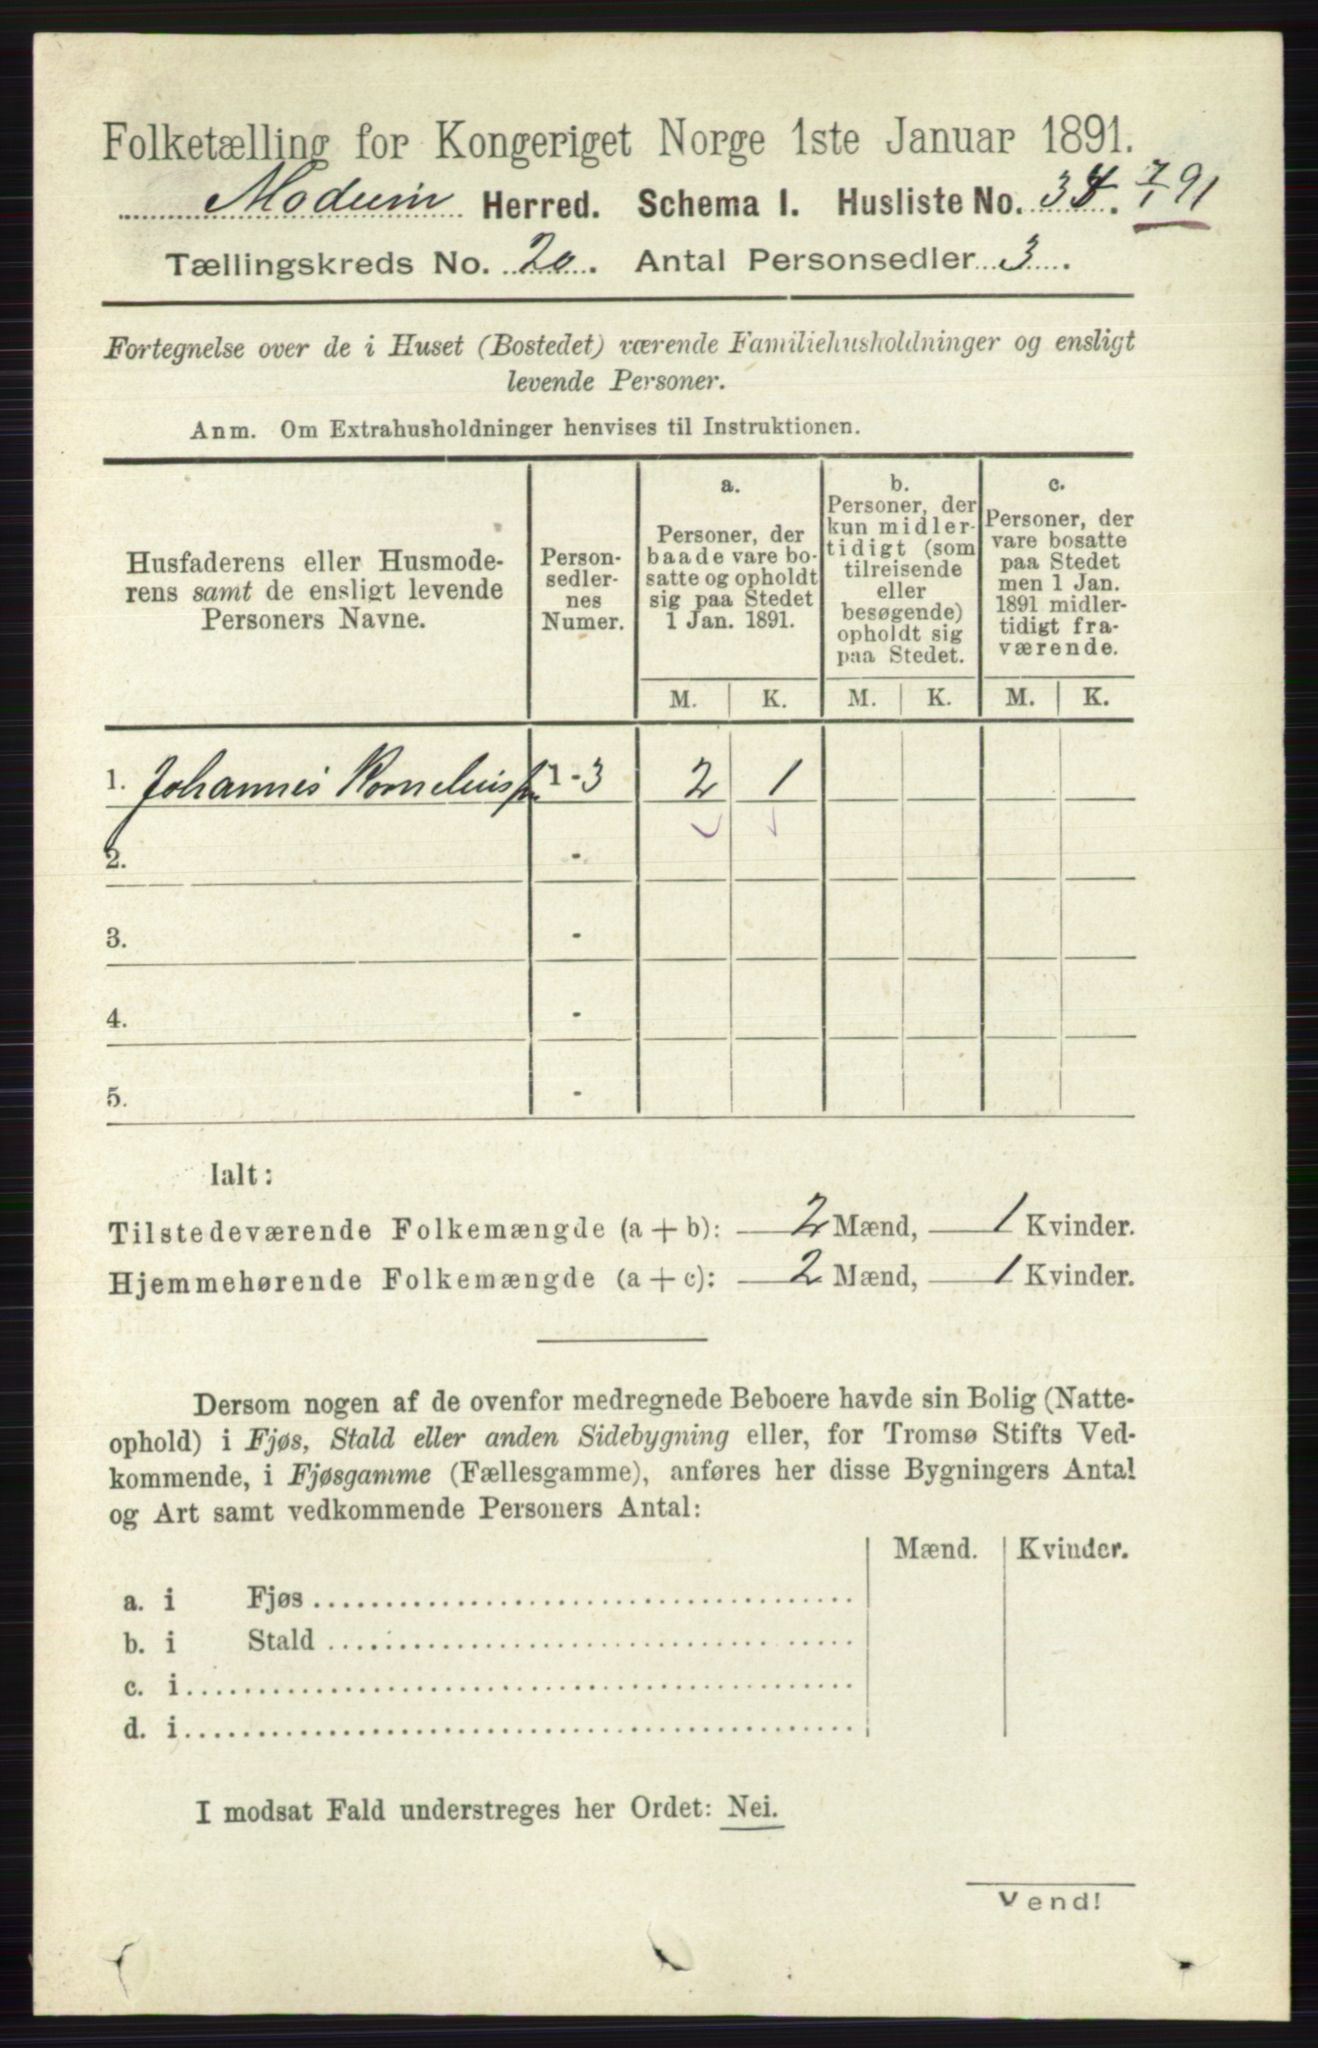 Folketælling for Kongeriget Norge 1ste Januar 1891.
Modum Herred. Schema I. Husliste No. 34. 791
Tællingskreds No. 20. Antal Personsedler 3.
Fortegnelse over de i Huset (Bostedet) værende Familiehusholdninger og ensligt
levende Personer.
Anm. Om Extrahusholdninger henvises til Instruktionen.
Husfaderens eller Husmode-
rens samt de ensligt levende
Personers Navne.
Person-
sedler-
nes
Numer.
a.
Personer, der
baade vare bo-
satte og opholdt
sig paa Stedet
1 Jan. 1891.
b.
Personer, der
kun midler-
tidigt (som
tilreisende
eller
besøgende)
opholdt sig
paa Stedet.
c.
Personer, der
vare bosatte
paa Stedet
men 1 Jan.
1891 midler-
tidigt fra-
værende.
M. K. M. K. M. K.
1. Johannes Kornelius 1-3 2 1
2. -
3. -
4. -
5. -
Ialt:
Tilstedeværende Folkemængde (a + b): 2 Mænd, 1 Kvinder.
Hjemmehørende Folkemængde (a + c): 2 Mænd, 1 Kvinder.
Dersom nogen af de ovenfor medregnede Beboere havde sin Bolig (Natte-
ophold) i Fjøs, Stald eller anden Sidebygning eller, for Tromsø Stifts Ved-
kommende, i Fjøsgamme (Fællesgamme), anføres her disse Bygningers Antal
og Art samt vedkommende Personers Antal:
Mænd. Kvinder.
a. i Fjøs
b. i Stald
c. i
d. i
I modsat Fald understreges her Ordet: Nei.
Vend!